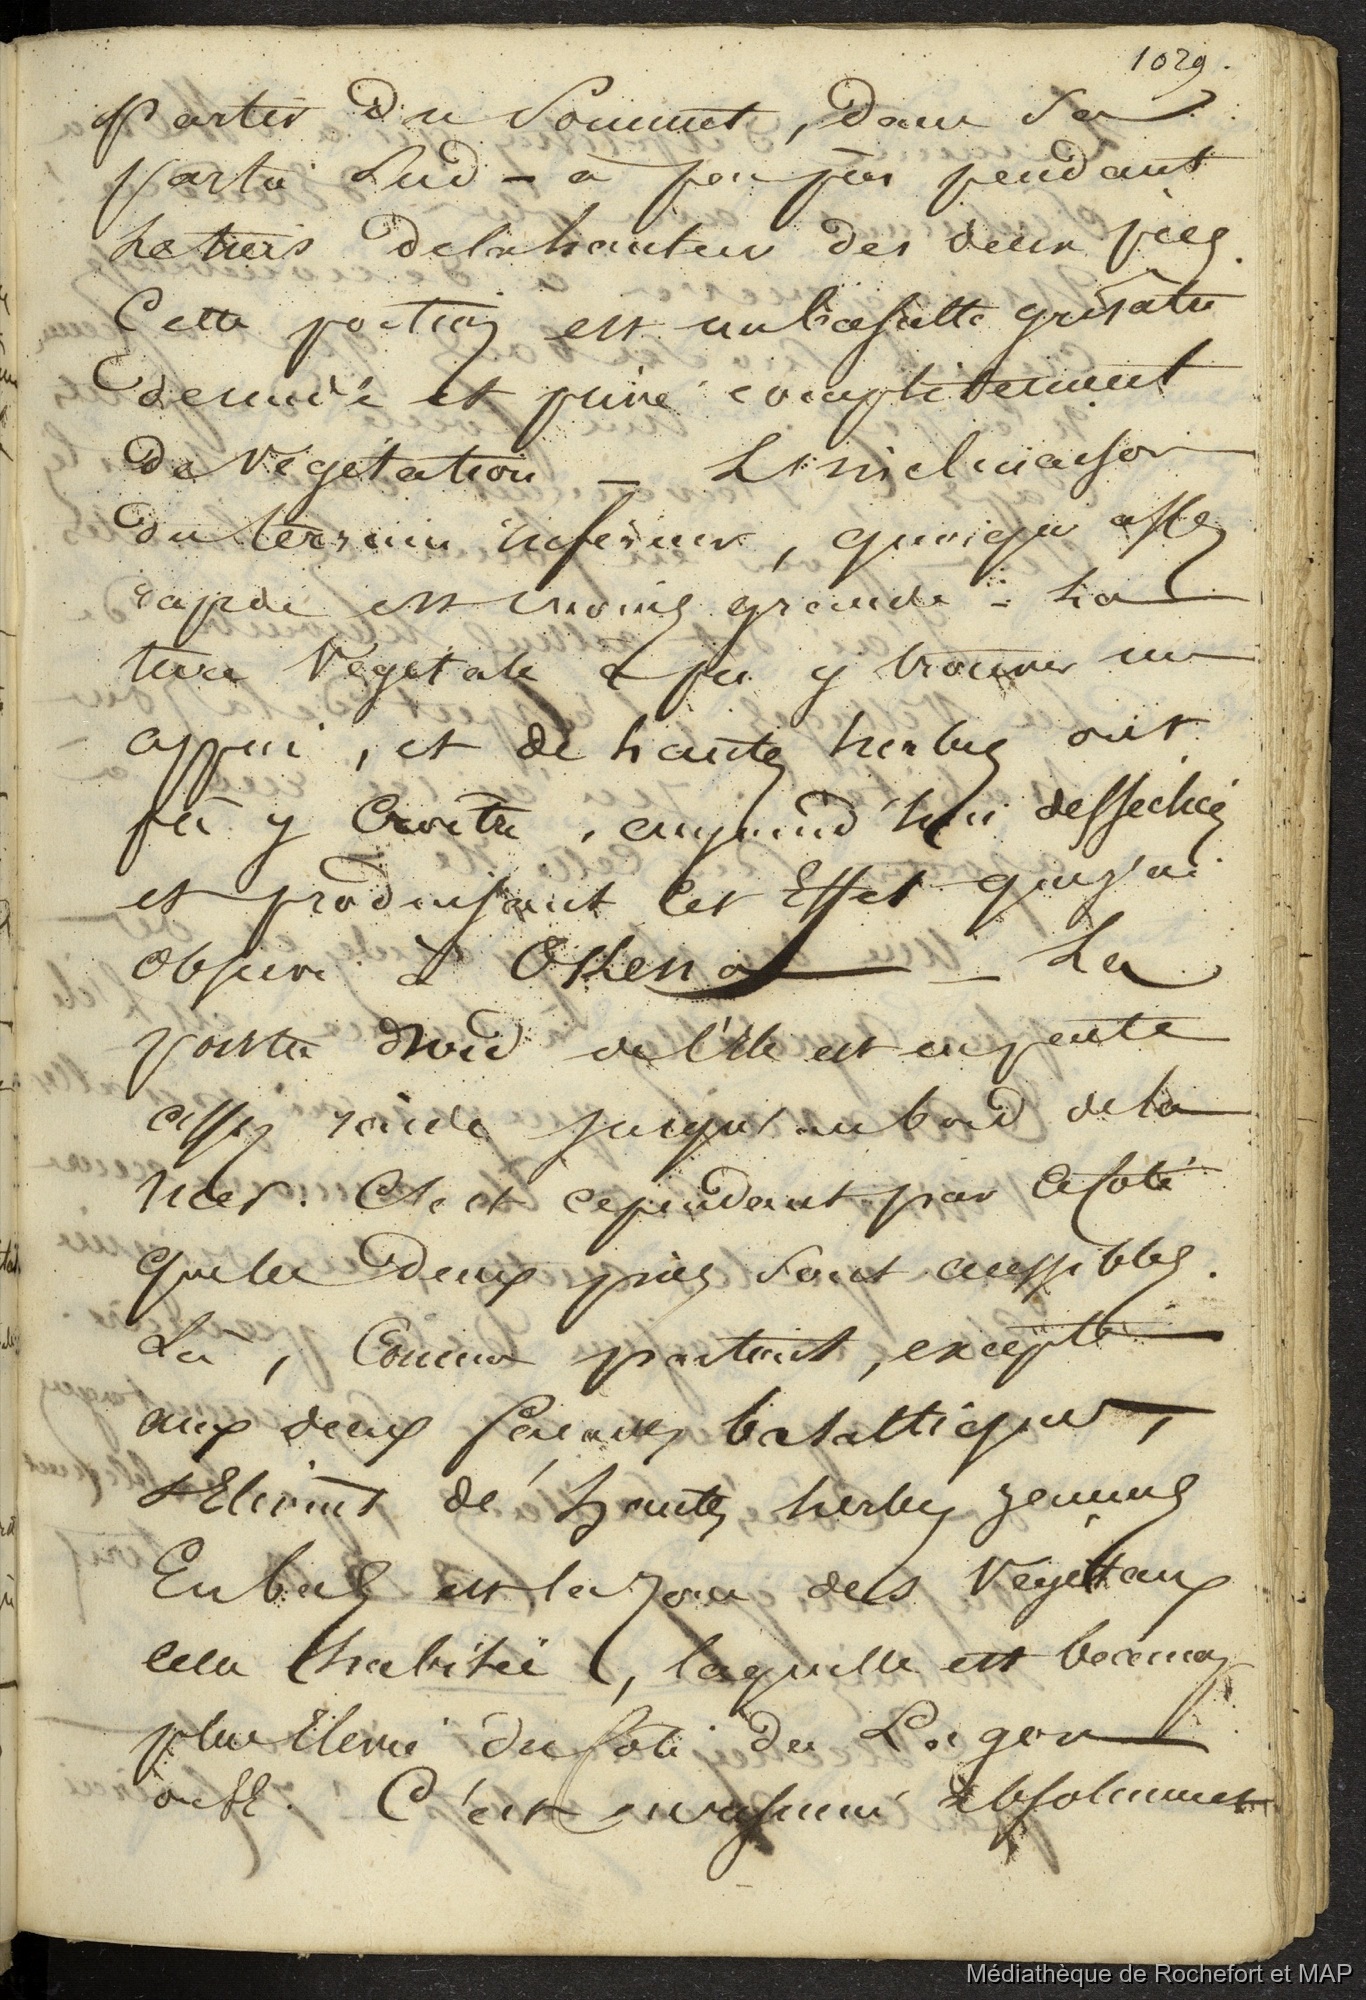 1029.
partir du Sommet, dans sa
partie Sud - à peu près pendant
le tiers de la hauteur des deux pics.
Cette portion est un basalte grisatre
denudé et privé complètement
de Végétation - L'inclinaison
du terrain inférieur, quoique assez
rapide est moins grande - La
terre Végétale a pu y trouver un
appui, et de hautes herbes ont
pû y Croître, aujourd'hui desséchées
et produisant cet Effet que j'ai
observé à
partie Nord de l'Ile est en pente
assez roide jusqu'au bord de la
mer. C'est cependant par ce côté
que les deux pics sont accessibles.
Là, Comme partout, excepté
aux deux basaltiques,
de hautes herbes jaunes
En bas est la Zone des Végétaux
celle habitée, laquelle est beaucoup
plus Elevée du côté du
ouest. C'est en résumé absolument
Médiathèque de Rochefort et MAP